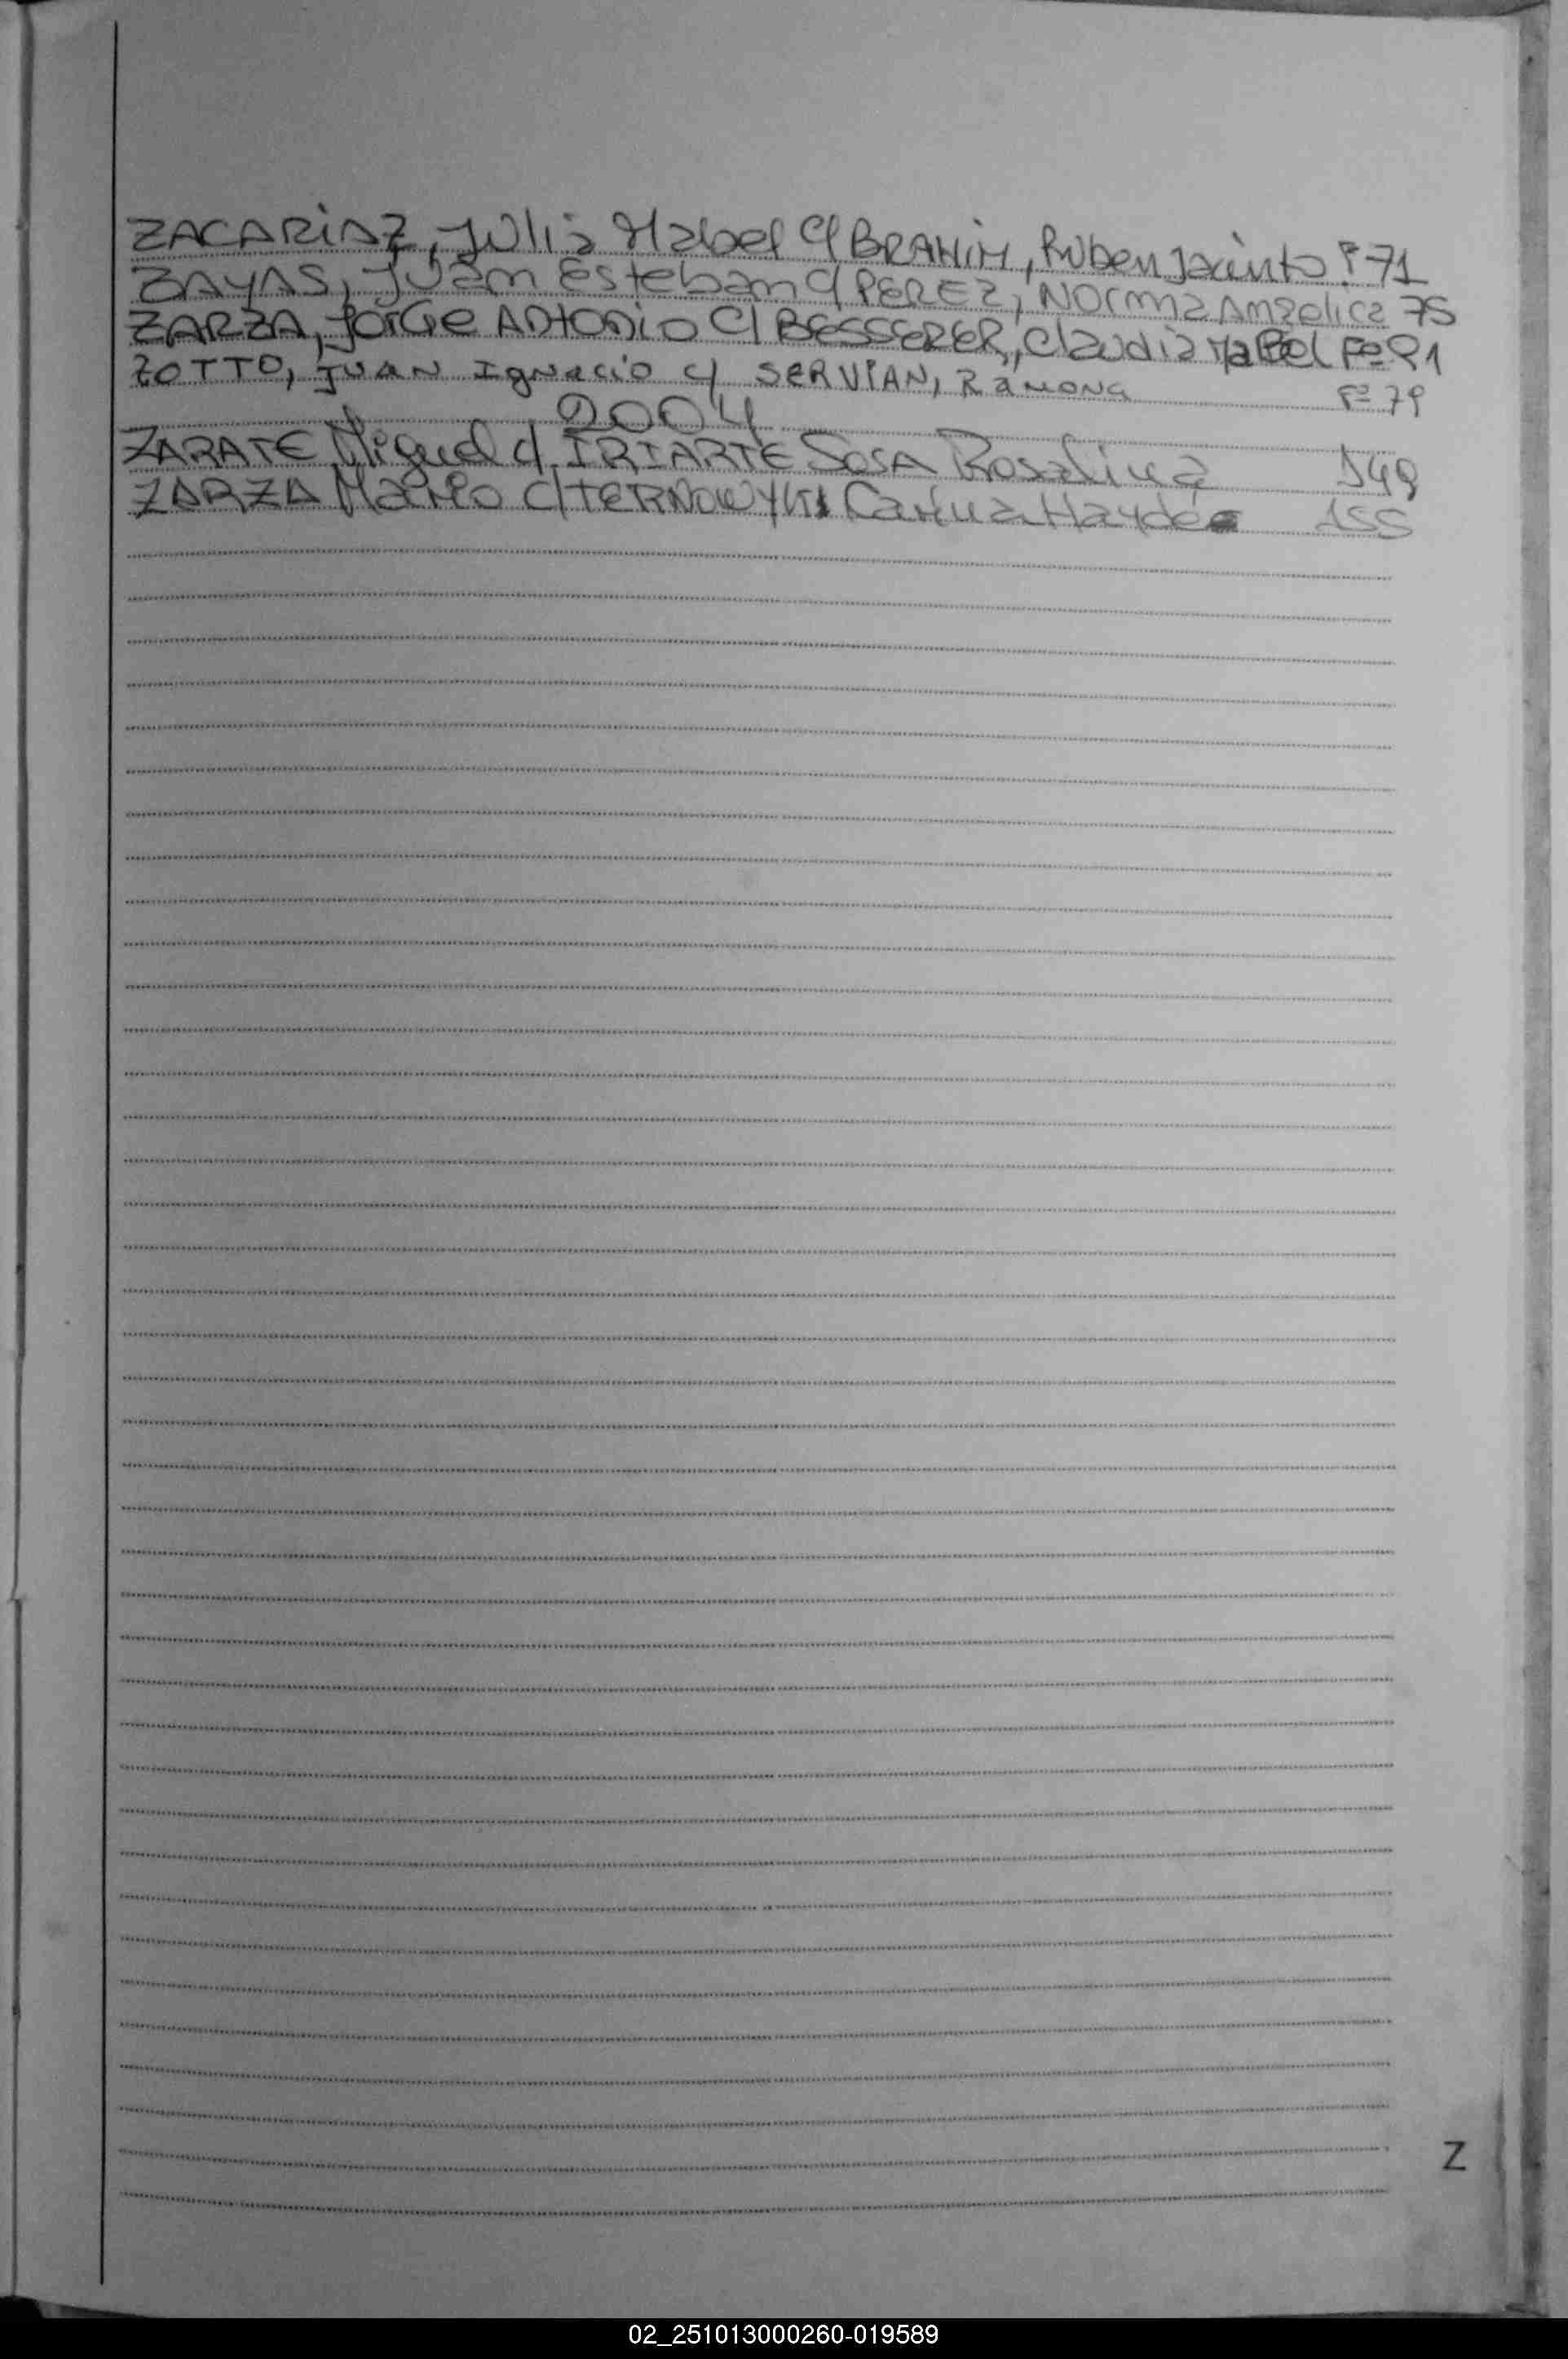 ZACARIAZ, Julia Mabel c/ BRAHIM, Ruben Jacinto F° 71
ZAYAS, Juan Esteban c/ PEREZ, Norma Angelica 75
ZARZA, Jorge Antonio c/ BESSERER, Claudia Mabel Fº 91
ZOTTO, JUAN Ignacio c/ SERVIAN, Ramona Fº 79
2004
ZARATE Miguel c/ IRIARTE SOSA Rosalina 149
ZARZA Mario c/ Carina Haydée 155
Z
02_251013000260-019589